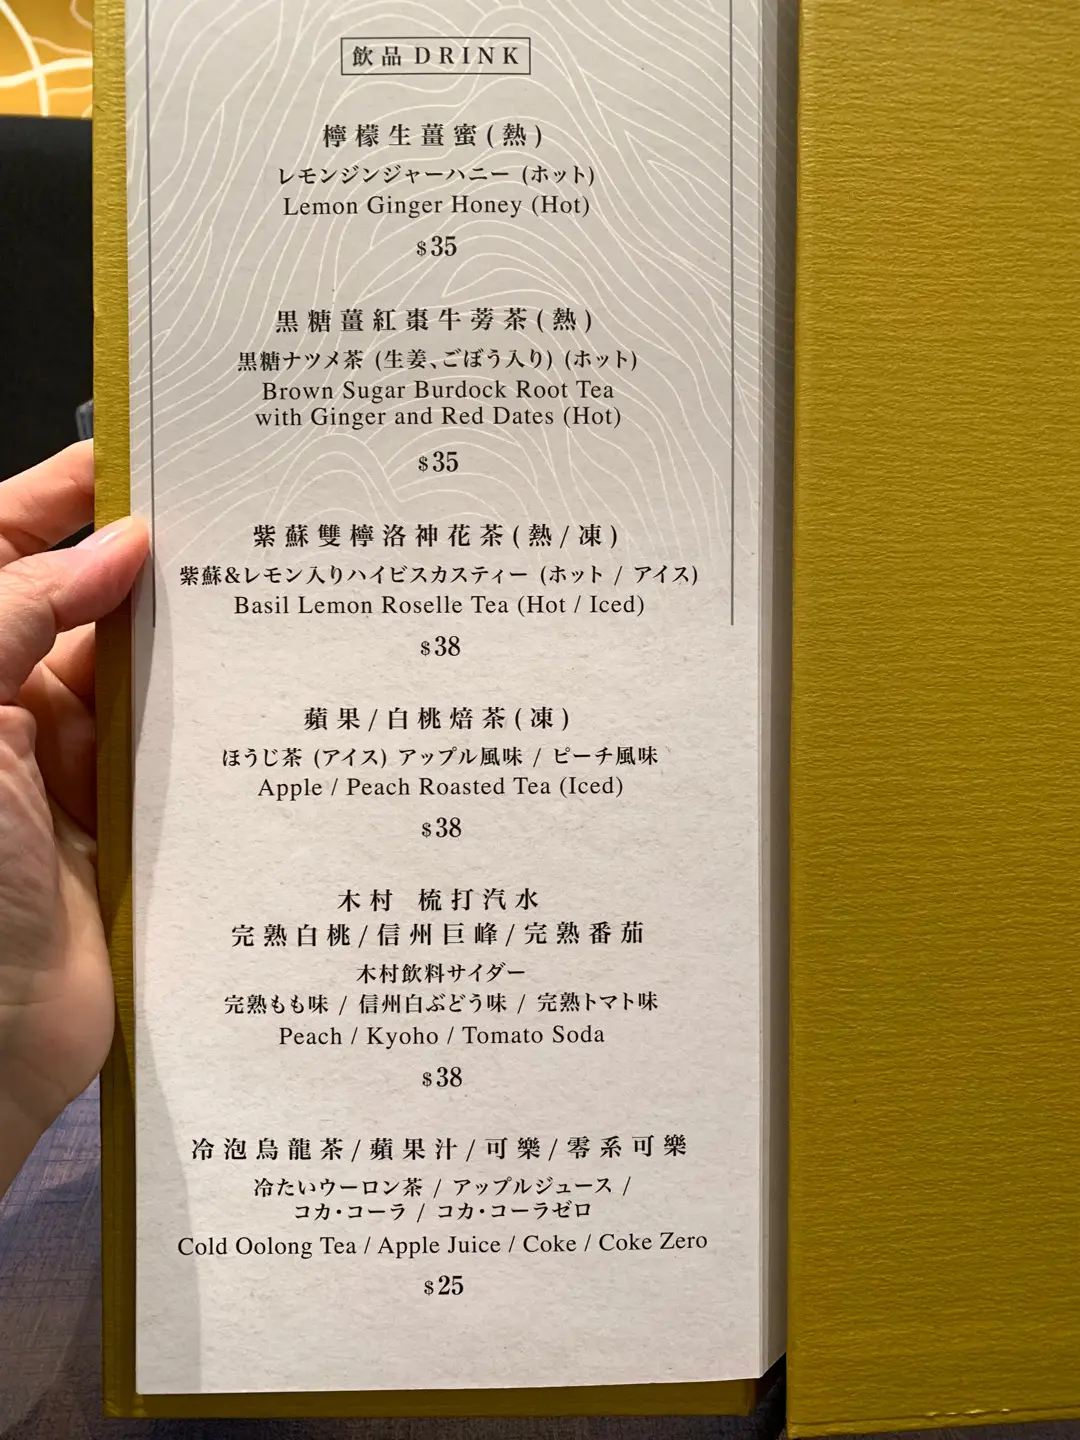 飲品 DRINK
檸檬生薑蜜(熱)
レモンジンジャーハニー (ホット)
Lemon Ginger Honey (Hot)
$35
黒糖薑紅棗牛蒡茶(熱)
黒糖ナツメ茶 (生姜、ごぼう入り) (ホット)
Brown Sugar Burdock Root Tea
with Ginger and Red Dates (Hot)
$35
紫蘇雙檸洛神花茶(熱/凍)
紫蘇&レモン入りハイビスカスティー (ホット / アイス)
Basil Lemon Roselle Tea (Hot / Iced)
$38
蘋果/白桃焙茶(凍)
ほうじ茶 (アイス) アップル風味 / ピーチ風味
Apple / Peach Roasted Tea (Iced)
$38
木村 梳打汽水
完熟白桃/信州巨峰/完熟番茄
木村飲料サイダー
完熟もも味 / 信州白ぶどう味 / 完熟トマト味
Peach / Kyoho / Tomato Soda
$38
冷泡烏龍茶/蘋果汁/可樂/零系可樂
冷たいウーロン茶 / アップルジュース /
コカ・コーラ / コカ・コーラゼロ
Cold Oolong Tea / Apple Juice / Coke / Coke Zero
$25